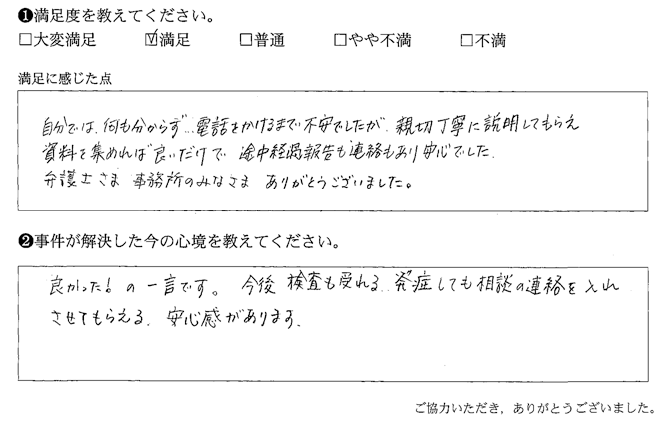 ❶満足度を教えてください。
□大変満足 ☑満足 □普通 □やや不満 □不満
満足に感じた点
自分では、何も分からず…電話をかけるまで不安でしたが、親切丁寧に説明してもらえ
資料を集めれば良いだけで 途中経過報告も連絡もあり安心でした。
弁護士さま 事務所のみなさま ありがとうございました。
❷事件が解決した今の心境を教えてください。
良かった!の一言です。 今後 検査も受れる、発症しても相談の連絡を入れ
させてもらえる、安心感があります。
ご協力いただき，ありがとうございました。